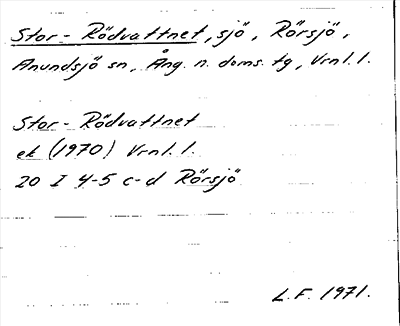 Stor-Rödvattnet, sjö, Rörsjö,
Anundsjö sn, Ång. n. doms. tg, Vrnl. l.
Stor-Rödvattnet
ek (1970) Vrnl. l.
20 I 4-5 c-d Rörsjö
L.F. 1971.